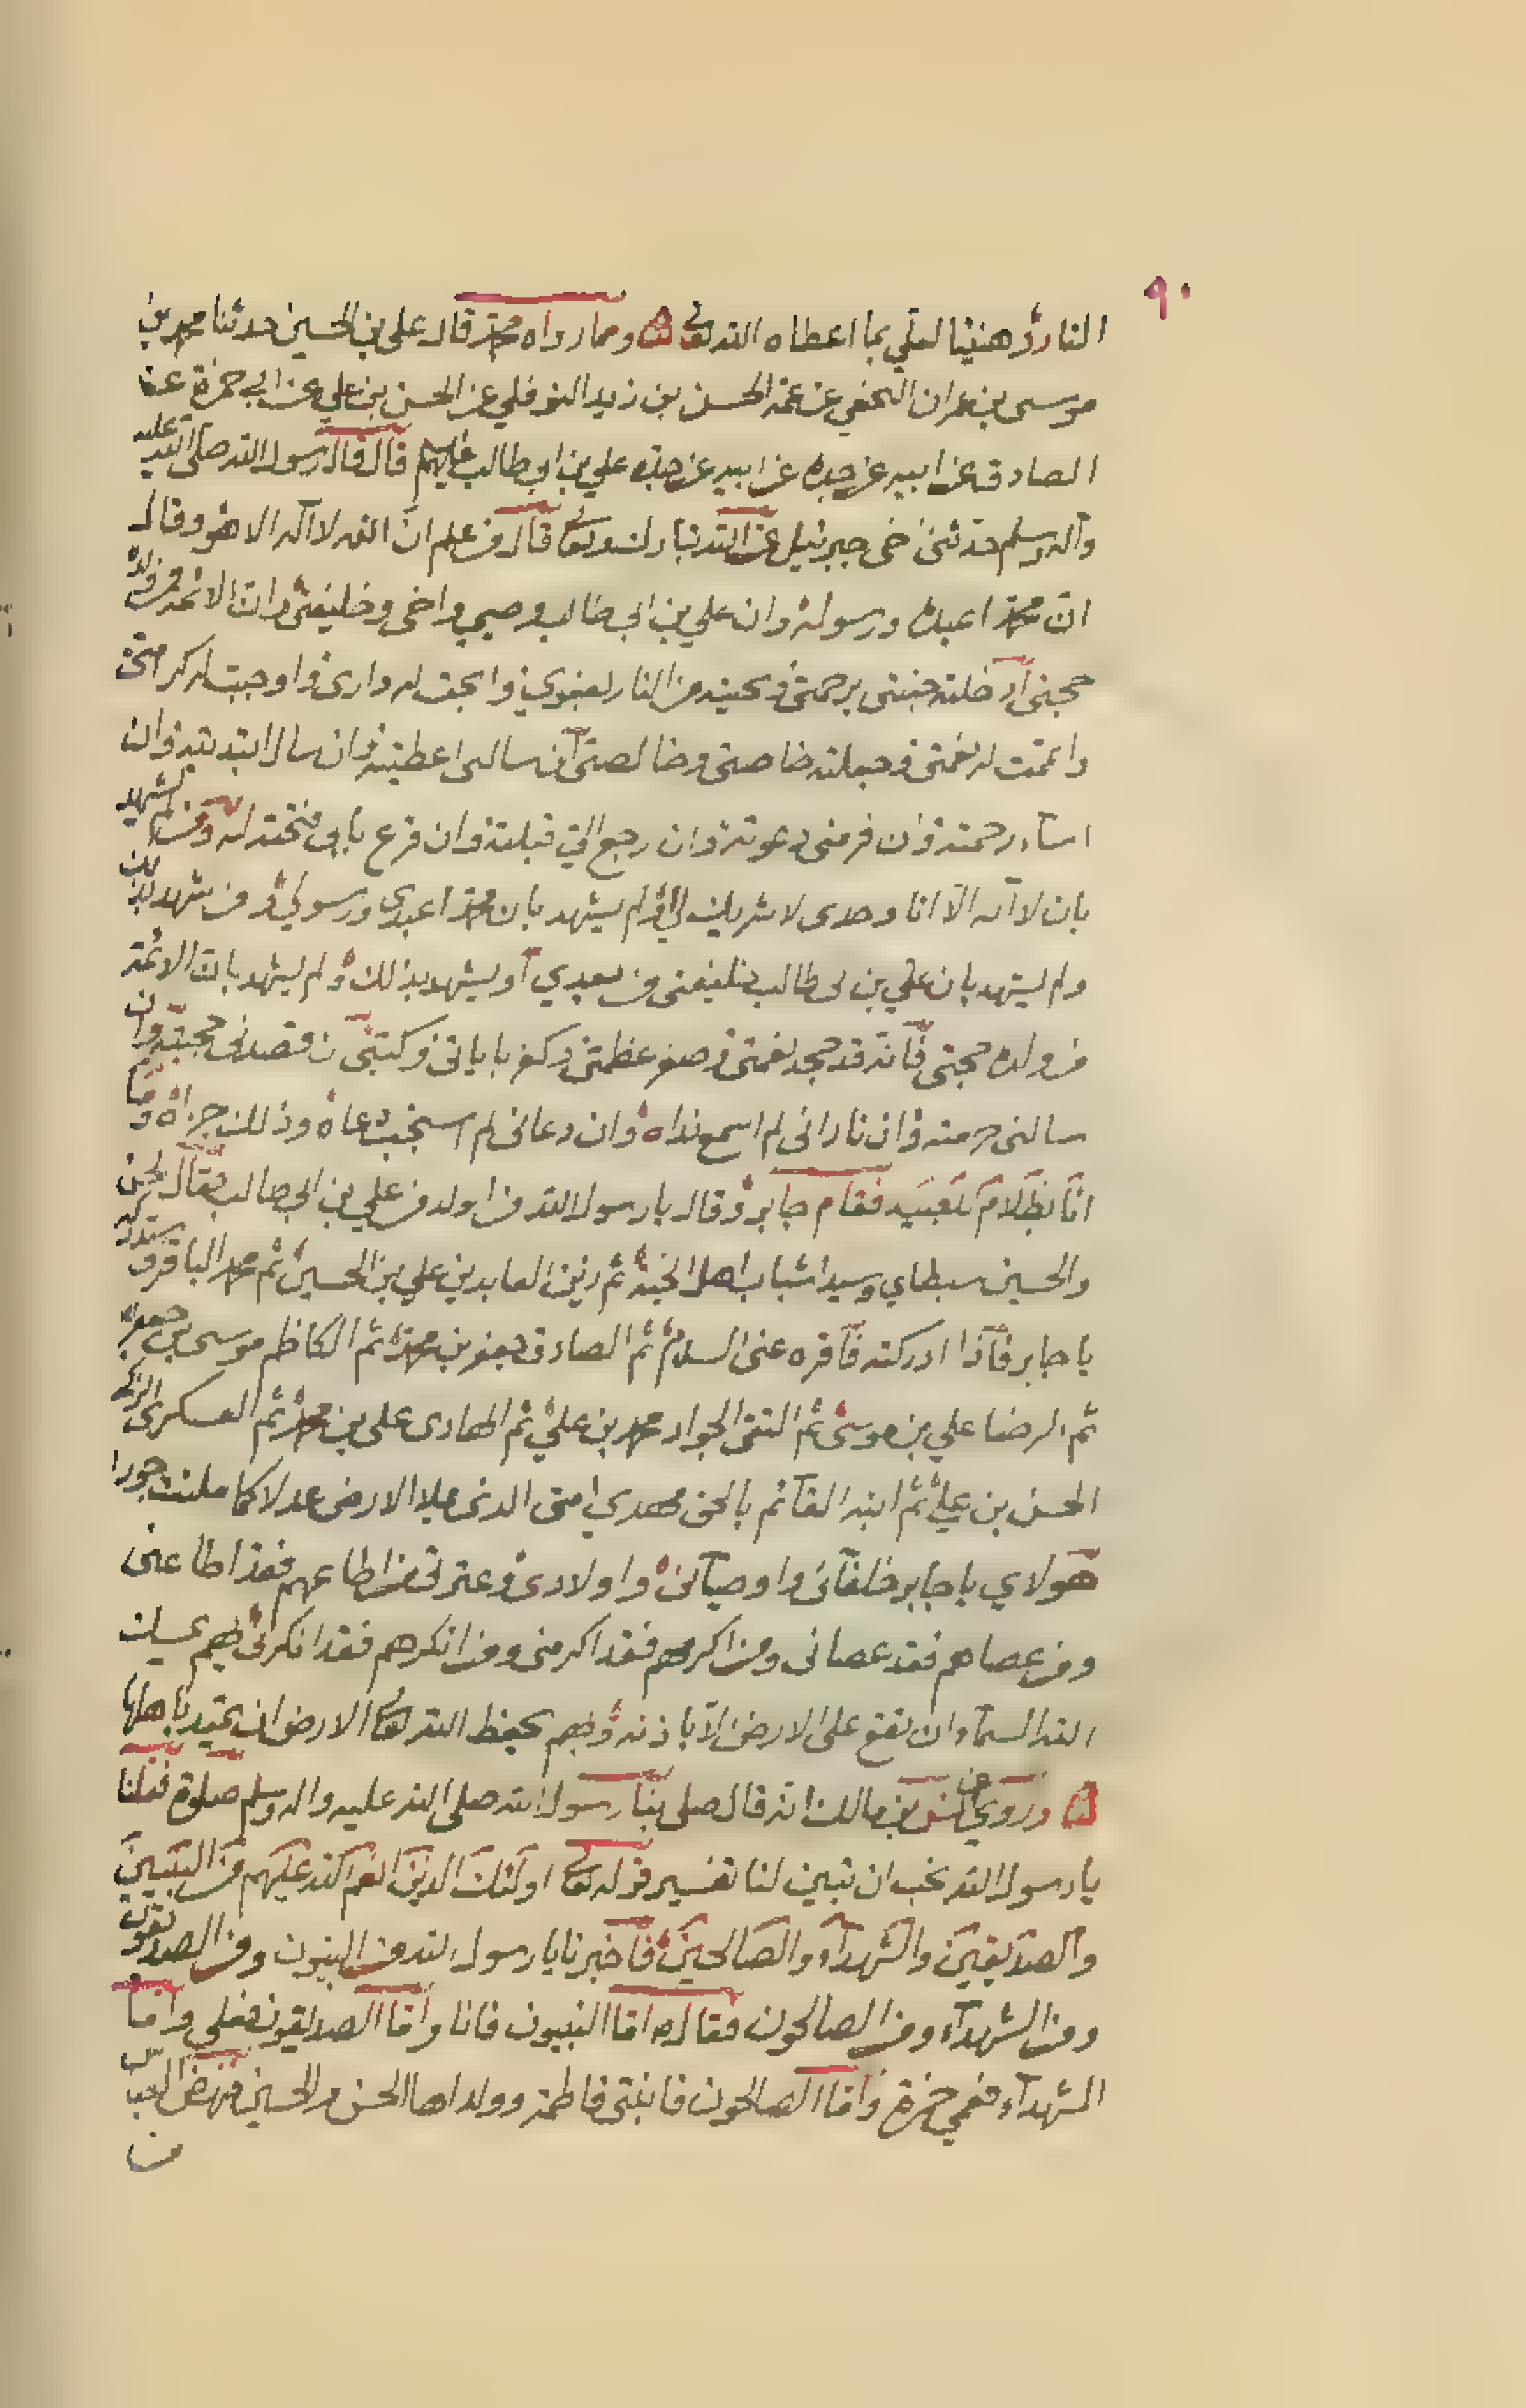 ٩٠
النار وهنيئا لعلي بما اعطاه الله تعالى ومما رواه محمد قال علي بن الحسين حدثنا محمد بن
موسى بن عمران النخعي عن عمه الحسن بن زيد النوفلي عن الحسن بن علي عن ابي حمزة عن
الصادق عن ابيه عن جده عن ابيه عن جده علي بن ابي طالب عليهم قال قال رسول الله صلى الله عليه
وآله وسلم حدثنى اخى جبرئيل عن الله تبارك وتعالى قال من علم ان الله لا اله الا هو وقال
ان محمدا عبده ورسوله وان علي بن ابي طالب وصيي واخى وخليفتى وان الائمة من ولده
حججى ادخلته جنتى برحمتى ونجيته من النار بعفوي وابحت له دارى واوجبت له كرامتى
واتممت له نعمتى وجعلته خاصتى وخالصتى ان سالنى اعطيته وان سال ابتديته وان
اساء رحمته وان فر منى دعوته وان رجع الي قبلته وان قرع بابى فتحته له ومن لم يشهد
بان لا اله الا انا وحدى لا شريك لي ولم يشهد بان محمدا عبدى ورسولي ومن شهد بذلك
ولم يشهد بان علي بن ابى طالب خليفتى من بعدي او يشهد بذلك ولم يشهد بان الائمة
من ولده حججى فانه قد جحد نعمتى وصغر عظمتى وكفر باياتى وكتبى ان قصدنى حجبته وان
سالنى حرمته وان نادانى لم اسمع نداه وان دعانى لم استجب دعاه وذلك جزاه وما
انا بظلام للعبيد فقام جابر وقال يا رسول الله من اولد من علي بن ابي طالب فقال الحسن
والحسين سبطاي وسيدا شباب اهل الجنة ثم زين العابدين علي بن الحسين ثم محمد الباقر وستدركه
يا جابر فاذا ادركته فاقره عنى السلام ثم الصادق جعفر بن محمد ثم الكاظم موسى بن جعفر
ثم الرضا علي بن موسى ثم التقى الجواد محمد بن علي ثم الهادى على بن محمد ثم العسكرى الزكي
الحسن بن علي ثم ابنه القآئم بالحق مهدي امتى الذى يملا الارض عدلا كما ملئت جورا
هولاي يا جابر خلفآئى واوصيآئى واولادى وعترتى من اطاعهم فقد اطاعنى
ومن عصاهم فقد عصانى ومن اكرمهم فقد اكرمنى ومن انكرهم فقد انكرنى بهم يمسك
الله السمآء ان تقع على الارض الا باذنه وبهم يحفظ الله تعالى الارض ان تميد باهلها
وروي عن انس بن مالك انه قال صلى بنا رسول الله صلى الله عليه واله وسلم صلوة فقلنا
يا رسول الله نحب ان تبين لنا تفسير قوله تعالى اولئك الذين انعم الله عليهم من النبيين
والصديقين والشهدآء والصالحين فاخبرنا يا رسول الله من النبيون ومن الصديقون
ومن الشهدآء ومن الصالحون فقال اما النبيون فانا واما الصديقون فعلي واما
الشهدآء فعمي حمزة واما الصالحون فابنتى فاطمة وولداها الحسن والحسين فنهض العباس
من